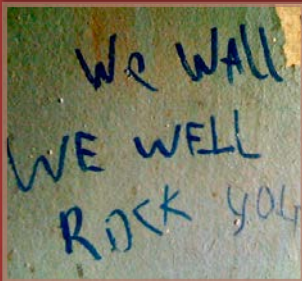 We WAll
WE WELL
ROCK YOU